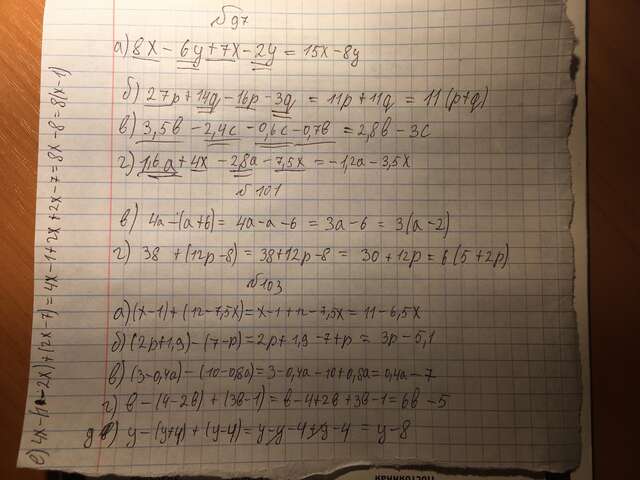 №97
а) 8x - 6y + 7x - 2y = 15x - 8y
б) 27p + 14q - 16p - 3q = 11p + 11q = 11(p+q)
в) 3,5в - 2,4с - 0,6с - 0,7в = 2,8в - 3с
г) 1,6а + 4x - 2,8а - 7,5x = -1,2а - 3,5x
№101
в) 4а - (а+6) = 4а - а - 6 = 3а - 6 = 3(а-2)
г) 38 + (12p - 8) = 38 + 12p - 8 = 30 + 12p = 6(5+2p)
№103
а) (x-1) + (12-7,5x) = x-1+12-7,5x = 11-6,5x
б) (2p+1,9) - (7-p) = 2p + 1,9 - 7 + p = 3p - 5,1
в) (3-0,4а) - (10-0,8а) = 3-0,4а-10+0,8а = 0,4а - 7
г) в - (4-2в) + (3в-1) = в-4+2в+3в-1 = 6в - 5
д) y - (y+4) + (y-4) = y-y-4+y-4 = y-8
е) 4x - (1-2x) + (2x-7) = 4x-1+2x+2x-7 = 8x-8 = 8(x-1)